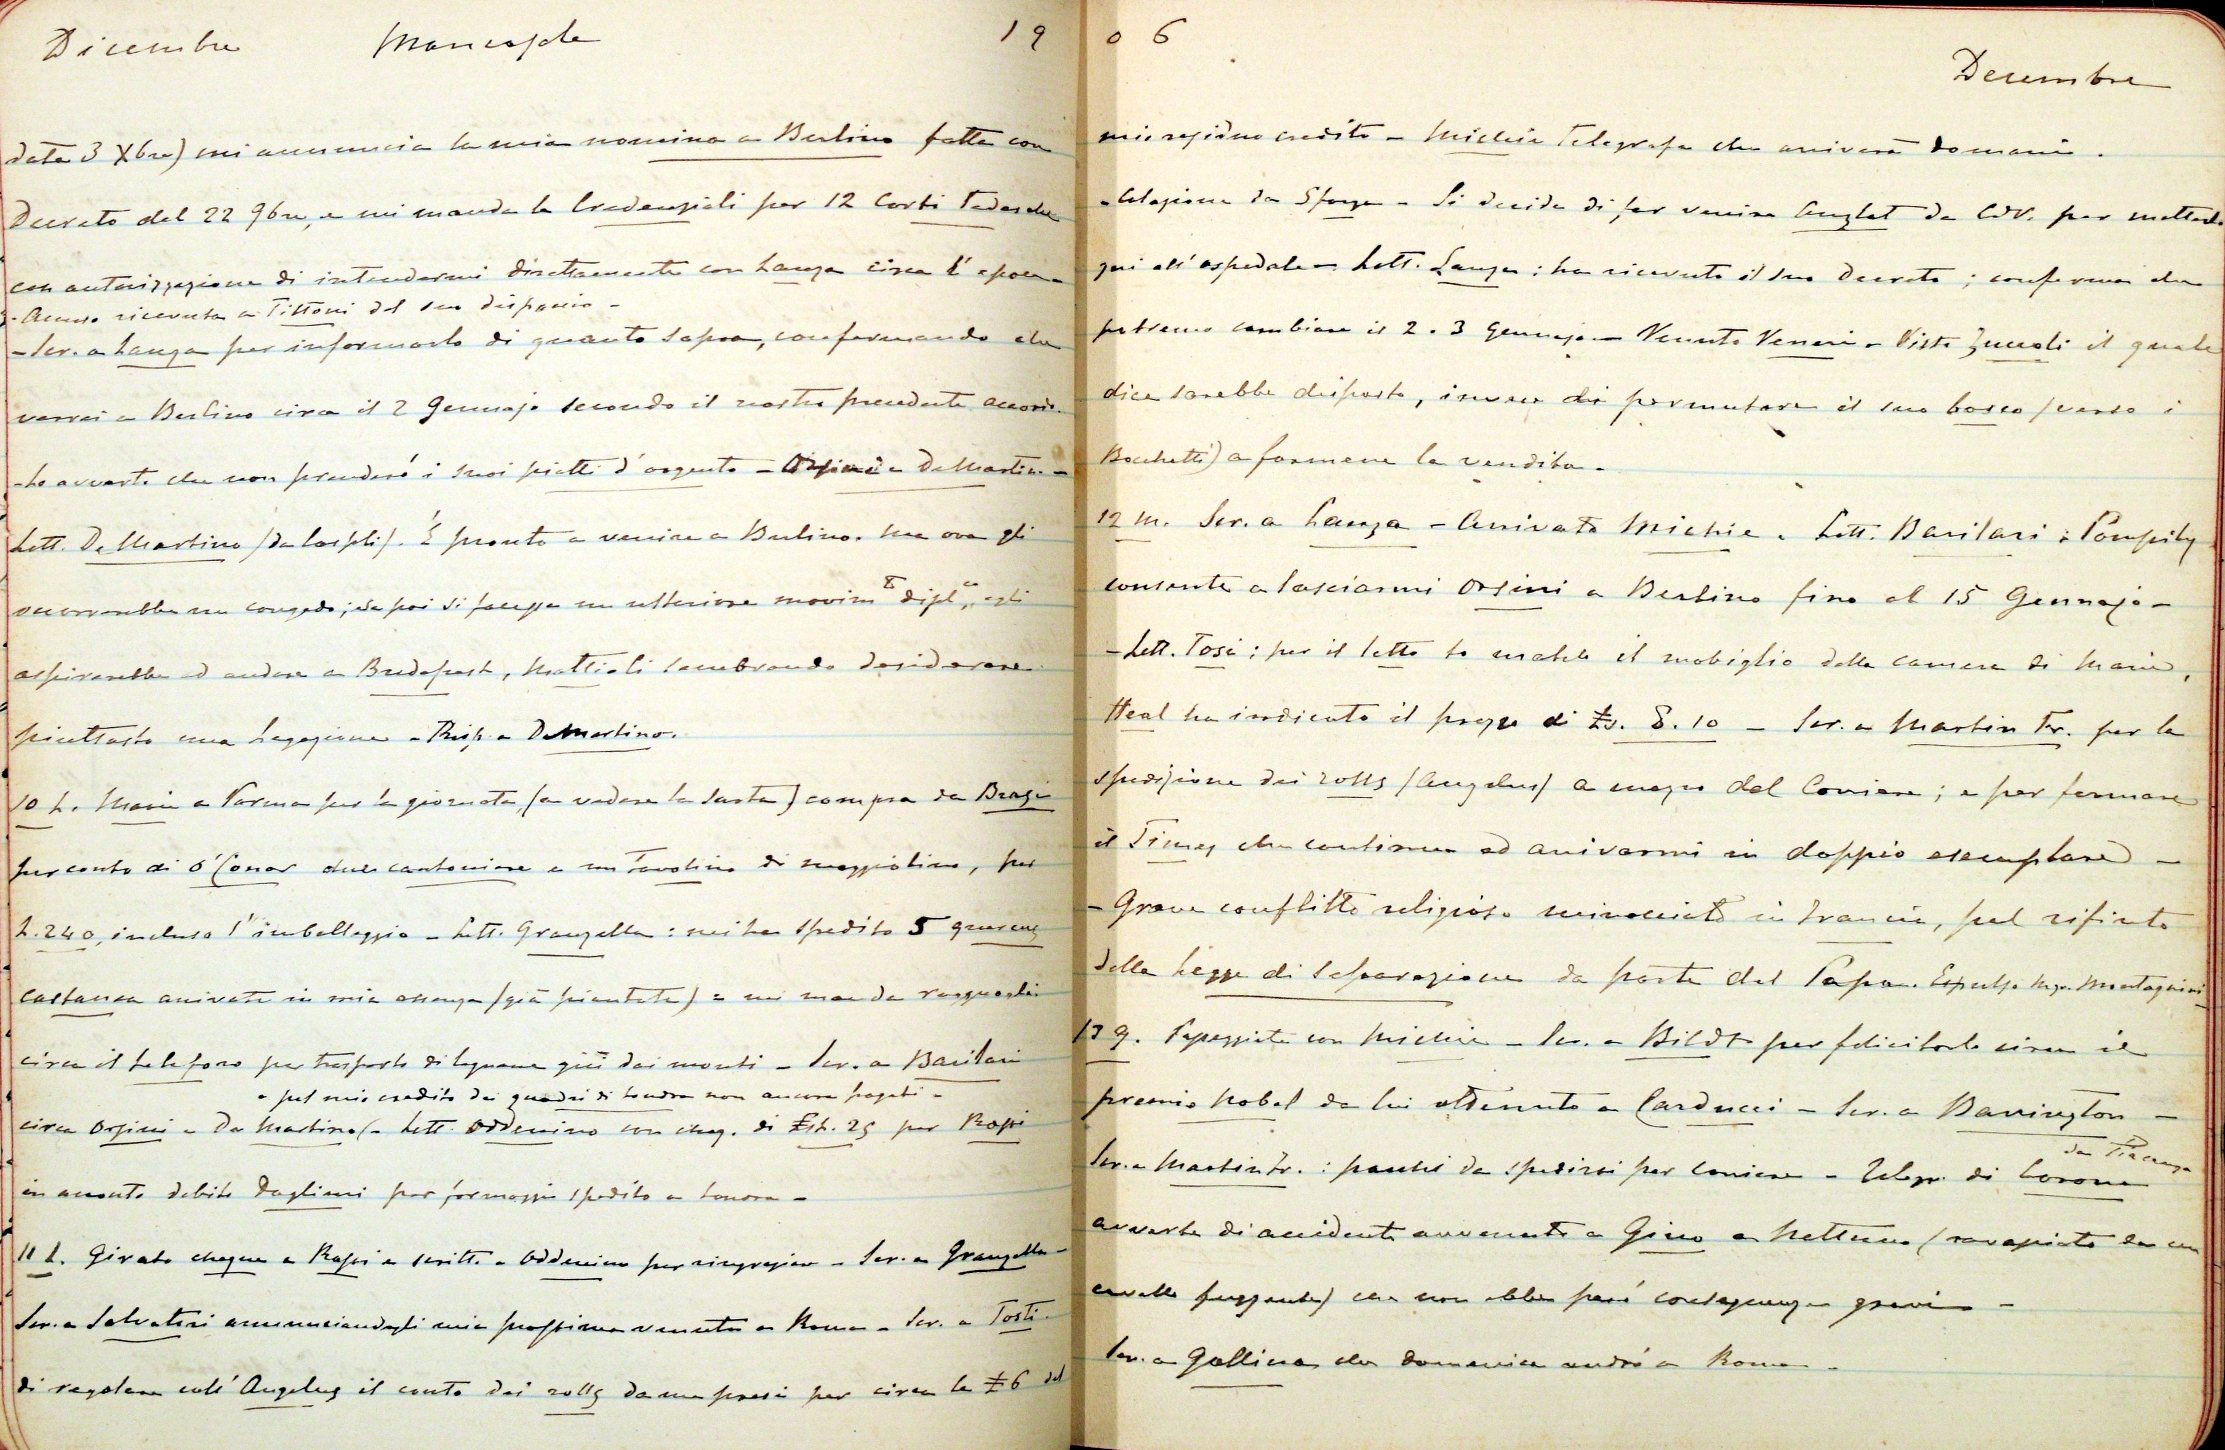 Dicembre Moncasale 19
data 3 Xbre) mi annuncia la mia nomina a Berlino fatta con
Decreto del 22 9bre, e mi manda le Credenziali per 12 Corti Tedesche
con autorizzazione di intendermi direttamente con Lanza circa l'epoca
- Accuso ricevuta a Tittoni del suo dispaccio -
- Scr. a Lanza per informarlo di quanto sopra, confermando che
verrei a Berlino circa il 2 Gennajo secondo il nostro precedente accordo.
- Lo avverto che non prenderò i suoi piatti d'argento - Orsini e De Martino -
Lett. De Martino (da ). È pronto a venire a Berlino. Ma ora gli
occorrerebbe un congedo; se poi si facesse un ulteriore movim.to dipl.co, egli
aspirerebbe ad andare a Budapest, Mattioli sembrando desiderare
piuttosto una Legazione - Risp. a De Martino.
10 L. Marie a Parma per la giornata, (a vedere la sarta) compra da
per conto di O'Conor due cantoniere e un tavolino di maggiolino, per
L. 240, incluso l'imballaggio - Lett. Granzella: mi ha spedito 5 quercus
castanea arrivate in mia assenza (già piantate) e mi manda ragguagli
circa il teleforo per trasporto di legname giù dai monti - Scr. a Barilari
e pel mio credito dei quadri di Londra non ancora pagati -
circa Orsini e De Martino (- Lett. Oddenino con cheq. di £st. 25 per Rossi
in acconto debito Dagliani per formaggio spedito a Londra -
11 L. Girato cheque a Rossi e scritto a Oddenino per ringraziare - Scr. a Granzella -
Scr. a Salvatori annunciandogli mia prossima venuta a Roma - Scr. a Tosti
di regolare coll'Angelus il conto dei rolls da me presi per circa le £ 6 del
06
Decembre
mio residuo credito - Michie telegrafa che arriverà domani.
- Colazione da Sforza - Si decide di far venire da CdV. per metterlo
qui all'ospedale - Lett. Lanza: ha ricevuto il suo Decreto; conferma che
potremo cambiare il 2.3 Gennajo - Venuto Veneri - Visto Zuccoli il quale
dice sarebbe disposto, invece di permutare il suo bosco (verso i
Bocchetti) a farmene la vendita -
12 M. Scr. a Lanza - Arrivato Michie - Lett. Barilari: Pompilj
consente a lasciarmi Orsini a Berlino fino al 15 Gennajo -
- Lett. Tosi: per il letto to match il mobiglio della camera di Marie,
Heal ha indicato il prezzo di £s. 8.10 - Scr. a Martin Fr. per la
spedizione dei rolls (Angelus) a mezzo del Corriere; e per fermare
il Times che continua ad arrivarmi in doppio esemplare -
- Grave conflitto religioso minacciato in Francia, pel rifiuto
della Legge di Separazione da parte del Papa. Espulso Mgr. Montagnini
13 g. Passeggiata con Michie - Scr. a Bildt per felicitarlo circa il
premio Nobel da lui ottenuto a Carducci - Scr. a Barrington -
da Piacenza
Scr. a Martin Fr.: pacchi da spedirsi per Corriere - Telegr. di Corona
avverte di accidente avvenuto a Gino a Nettuno (rovesciato da un
cavallo fuggente) che non ebbe però conseguenze gravi -
Scr. a Gallina che domenica andrò a Roma -